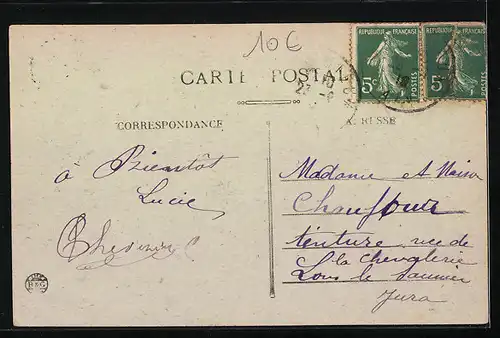 10€
REPUBLIQUE FRANÇAISE
5c
POSTES
REPUBLIQUE FRANÇAISE
5c
POSTES
CARTE POSTALE
CORRESPONDANCE
ADRESSE
à Bientôt
Lucie
Madame et
Chauffour
teinture rue de
la chevalerie
Lons le Saunier
Jura